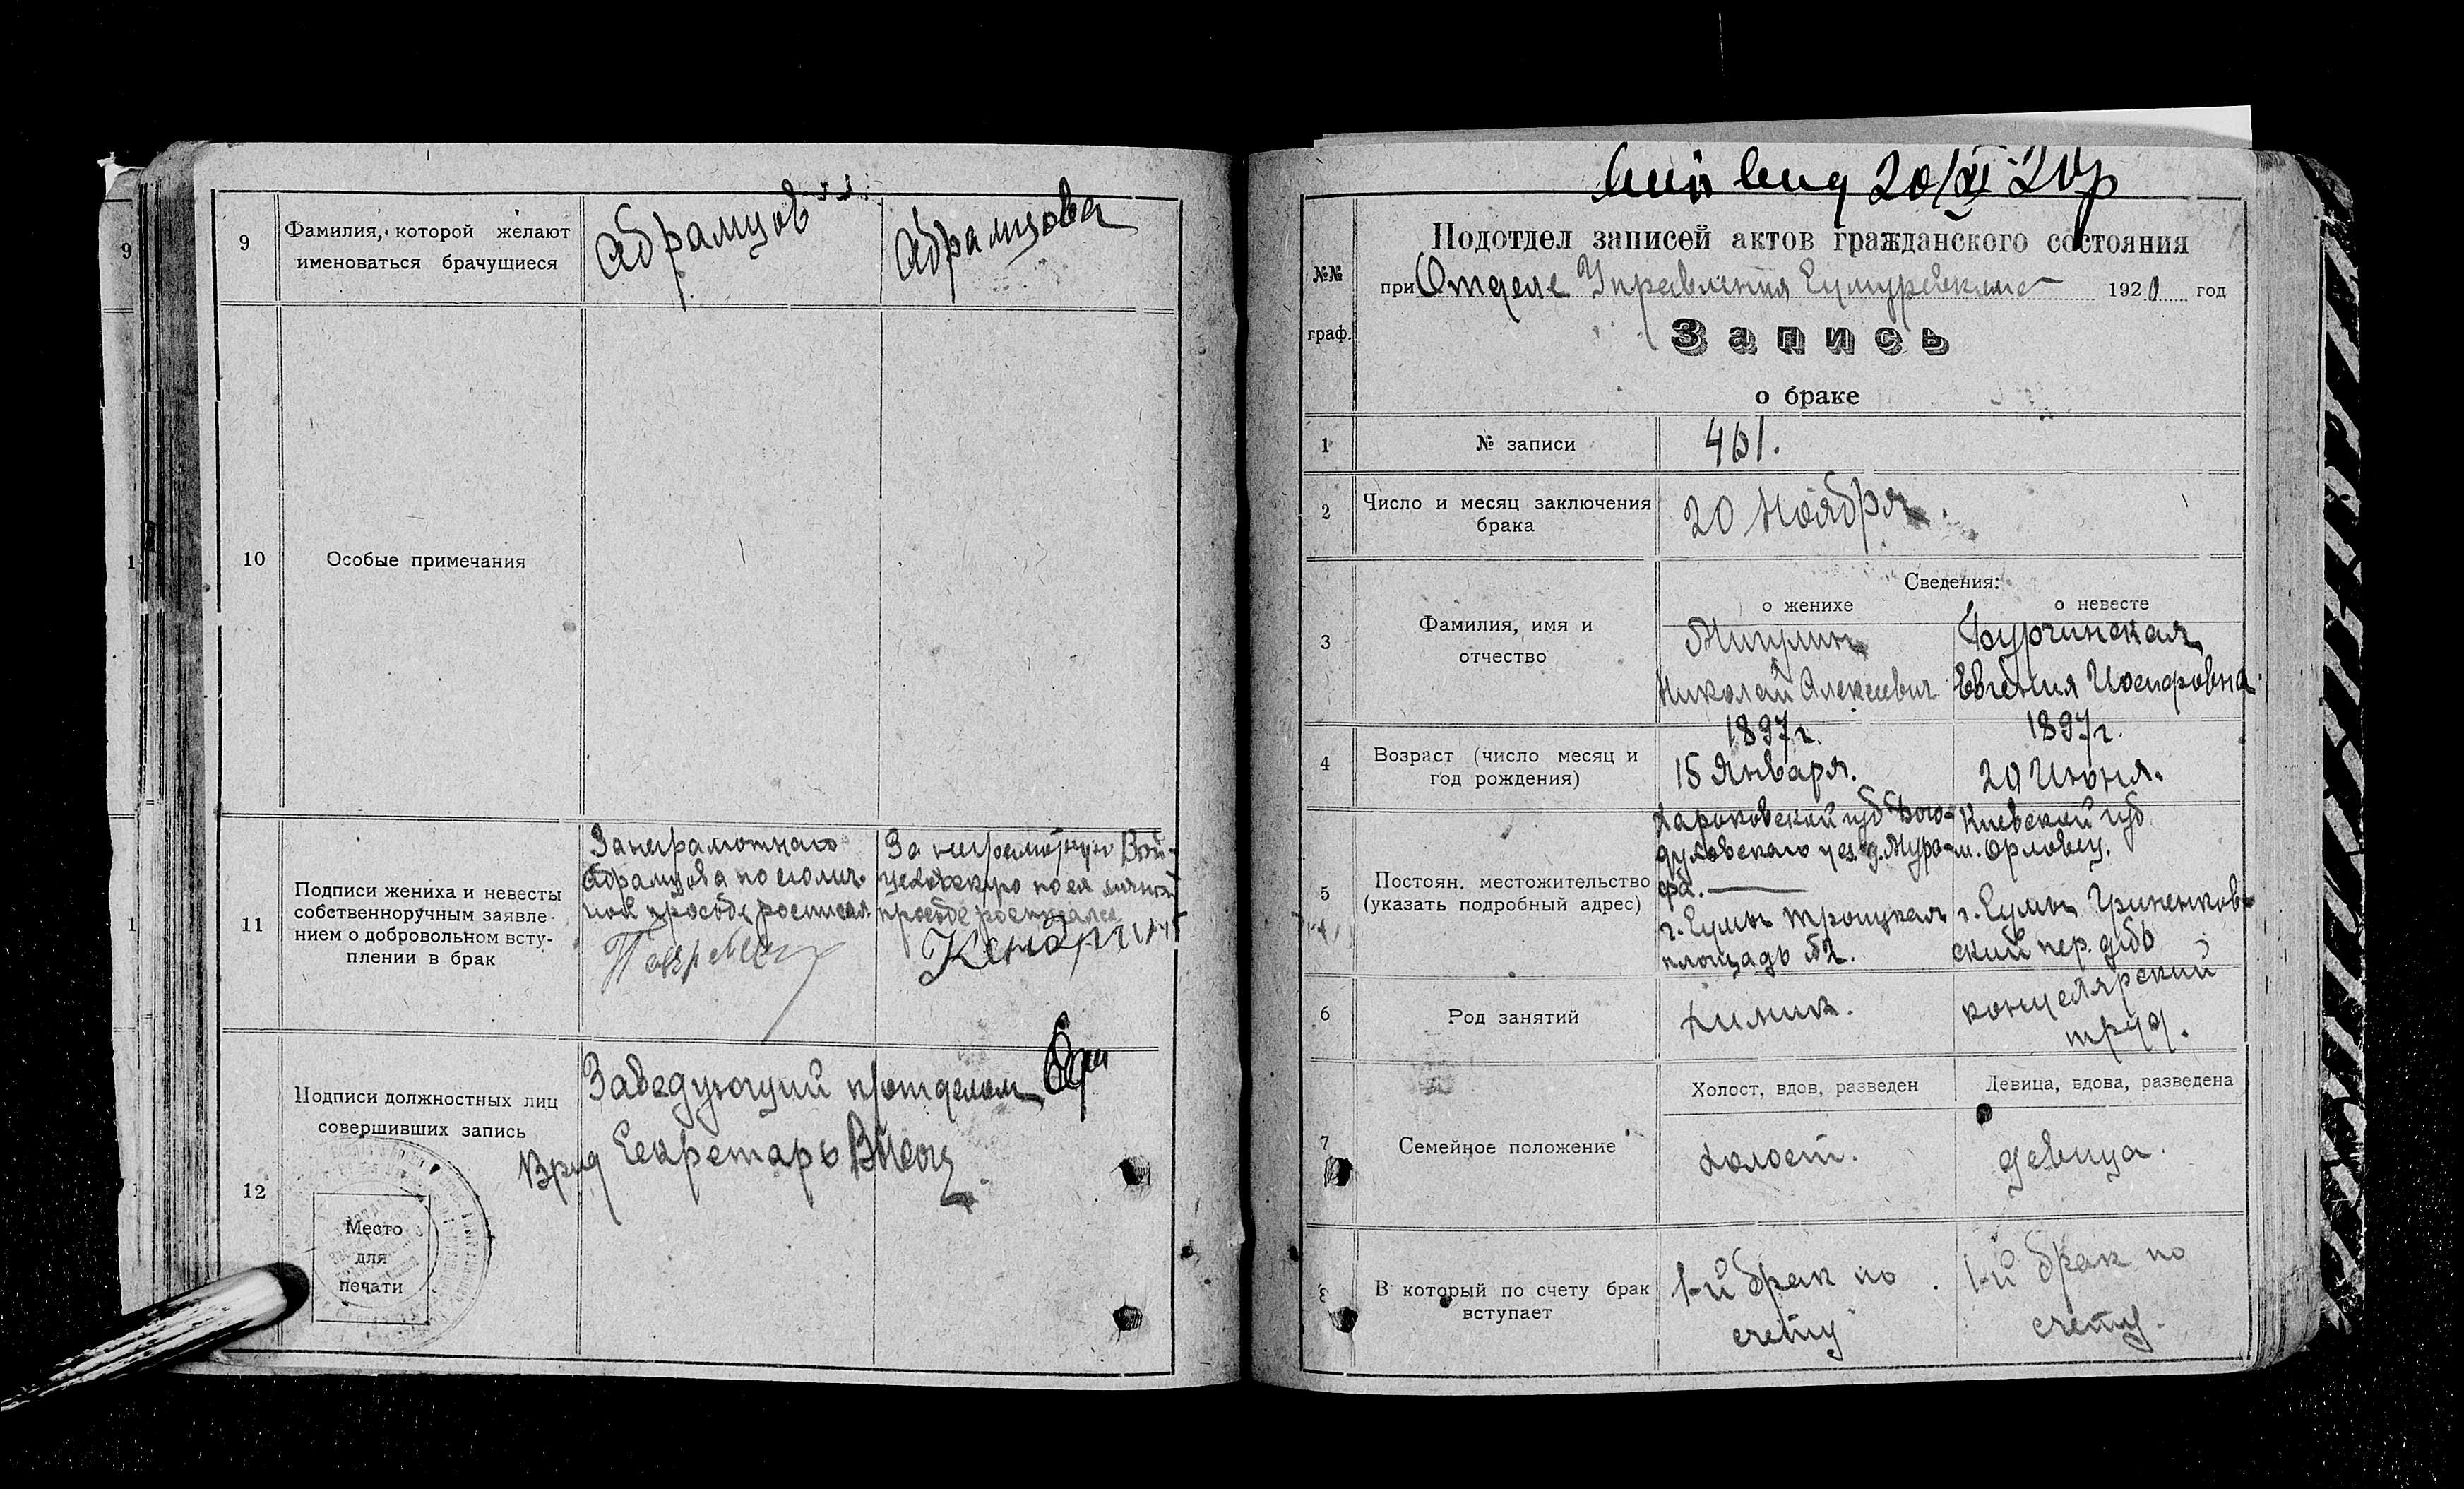 9
Фамилия, которой желают
именоваться брачущиеся
Абрамцов
Абрамцова
10
Особые примечания
11
Подписи жениха и невесты
собственноручным заявле-
нием о добровольном всту-
плении в брак
За неграмотнаго
Абрамцова по его лич-
ной просьбе росписал
За неграмотную Вой-
по ея личной
просьбе росписался
12
Подписи должностных лиц
совершивших запись
Заведующий п/отделом
Врид Секретарь
Место
для
печати
20/XI 20г
№№
граф.
Подотдел записей актов гражданского состояния
при Отделе Управления Сумрайкома 1920 год
Запись
о браке
1
№ записи
461.
2
Число и месяц заключения
брака
20 Ноября.
3
Фамилия, имя и
отчество
Сведения:
о женихе
о невесте
Мигулин
Николай Алексеевич
Бурчинская
Евгения Иосифовна
4
Возраст (число месяц и
год рождения)
1897г.
15 Января.
1897г.
20 Июня.
5
Постоян. местожительство
(указать подробный адрес)
Харьковской губ Бого-
духовскаго уез. д. Мура-
фа.
г. Сумы Троицкая
площадь №2.
Киевской губ
м. Орловец.
г. Сумы Гриненков-
ский пер. д№6
6
Род занятий
химик.
концелярский
труд.
7
Семейное положение
Холост, вдов, разведен
Девица, вдова, разведена
холост.
девица.
8
В который по счету брак
вступает
1-й брак по
счету
1-й брак по
счету.